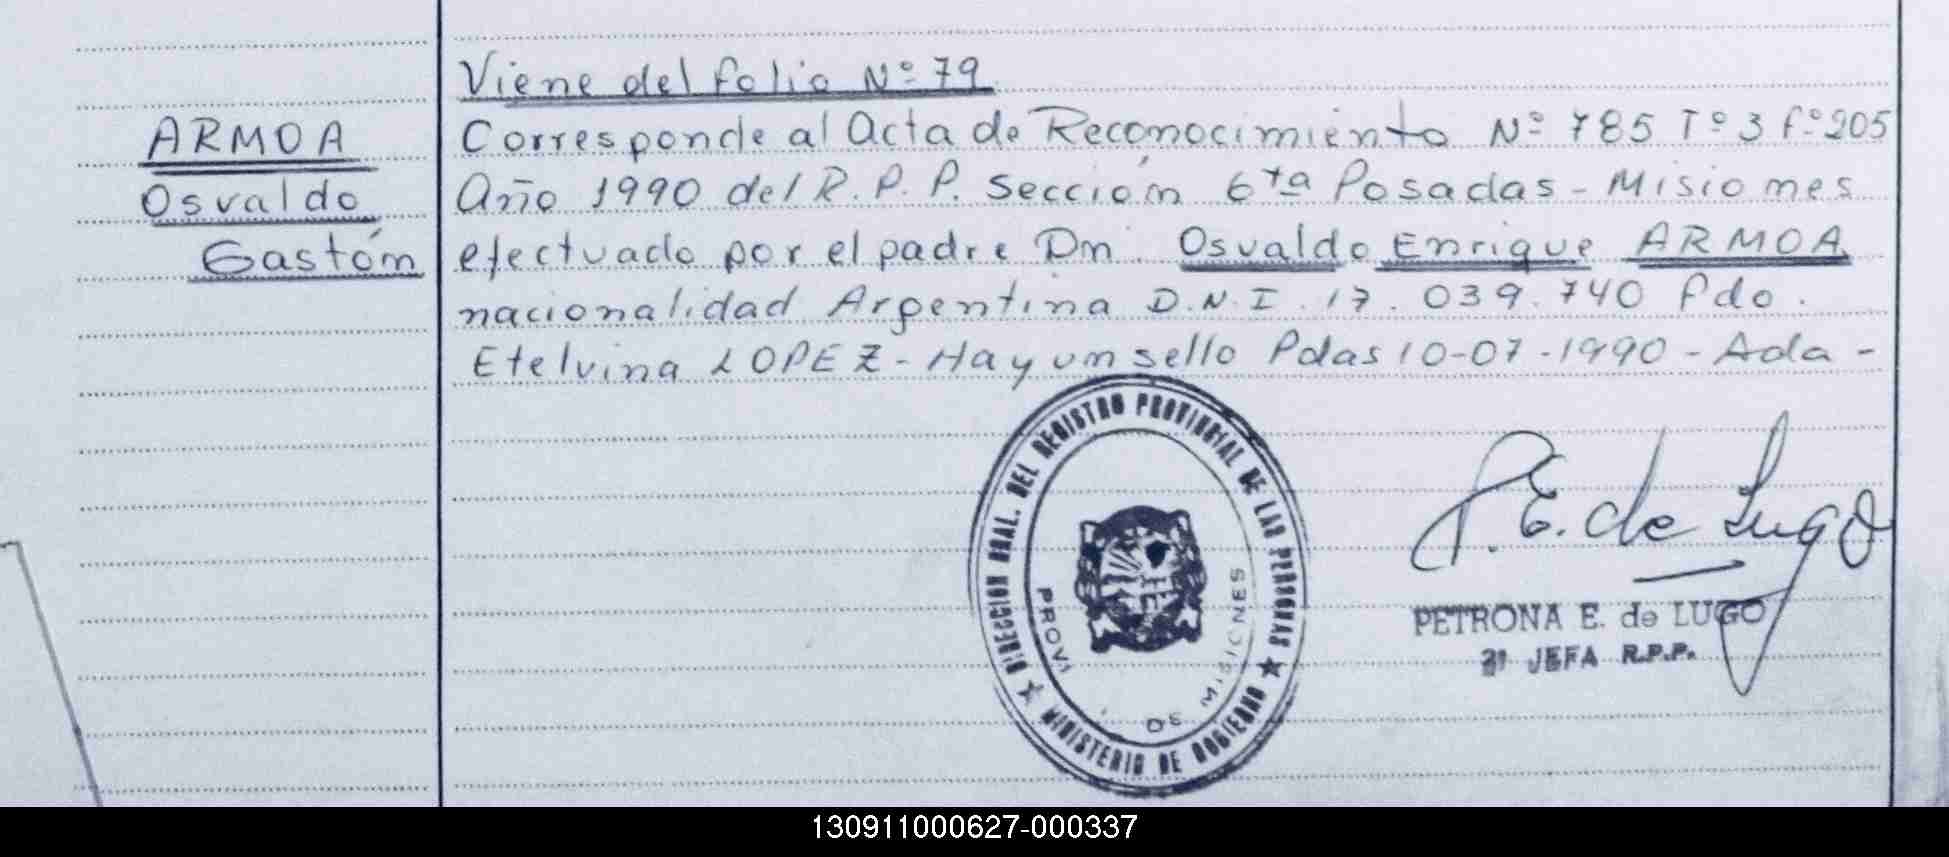 Viene del folio Nº 79
ARMOA
Corresponde al Acta de Reconocimiento Nº 785 Tº 3 fº 205
Osvaldo
Año 1990 del R.P.P. Sección 6ta Posadas - Misiones
Gastón
efectuado por el padre Dn. Osvaldo Enrique ARMOA
nacionalidad Argentina D.N.I. 17.039.740 fdo.
Etelvina LOPEZ - Hay un sello Pdas 10-07-1990 - Ada -
DIRECCION GRAL. DEL REGISTRO PROVINCIAL DE LAS PERSONAS
★ MINISTERIO DE GOBIERNO ★
PROVI
DE MISIONES
P. E. de Lugo
PETRONA E. de LUGO
JEFA R.P.P.
130911000627-000337